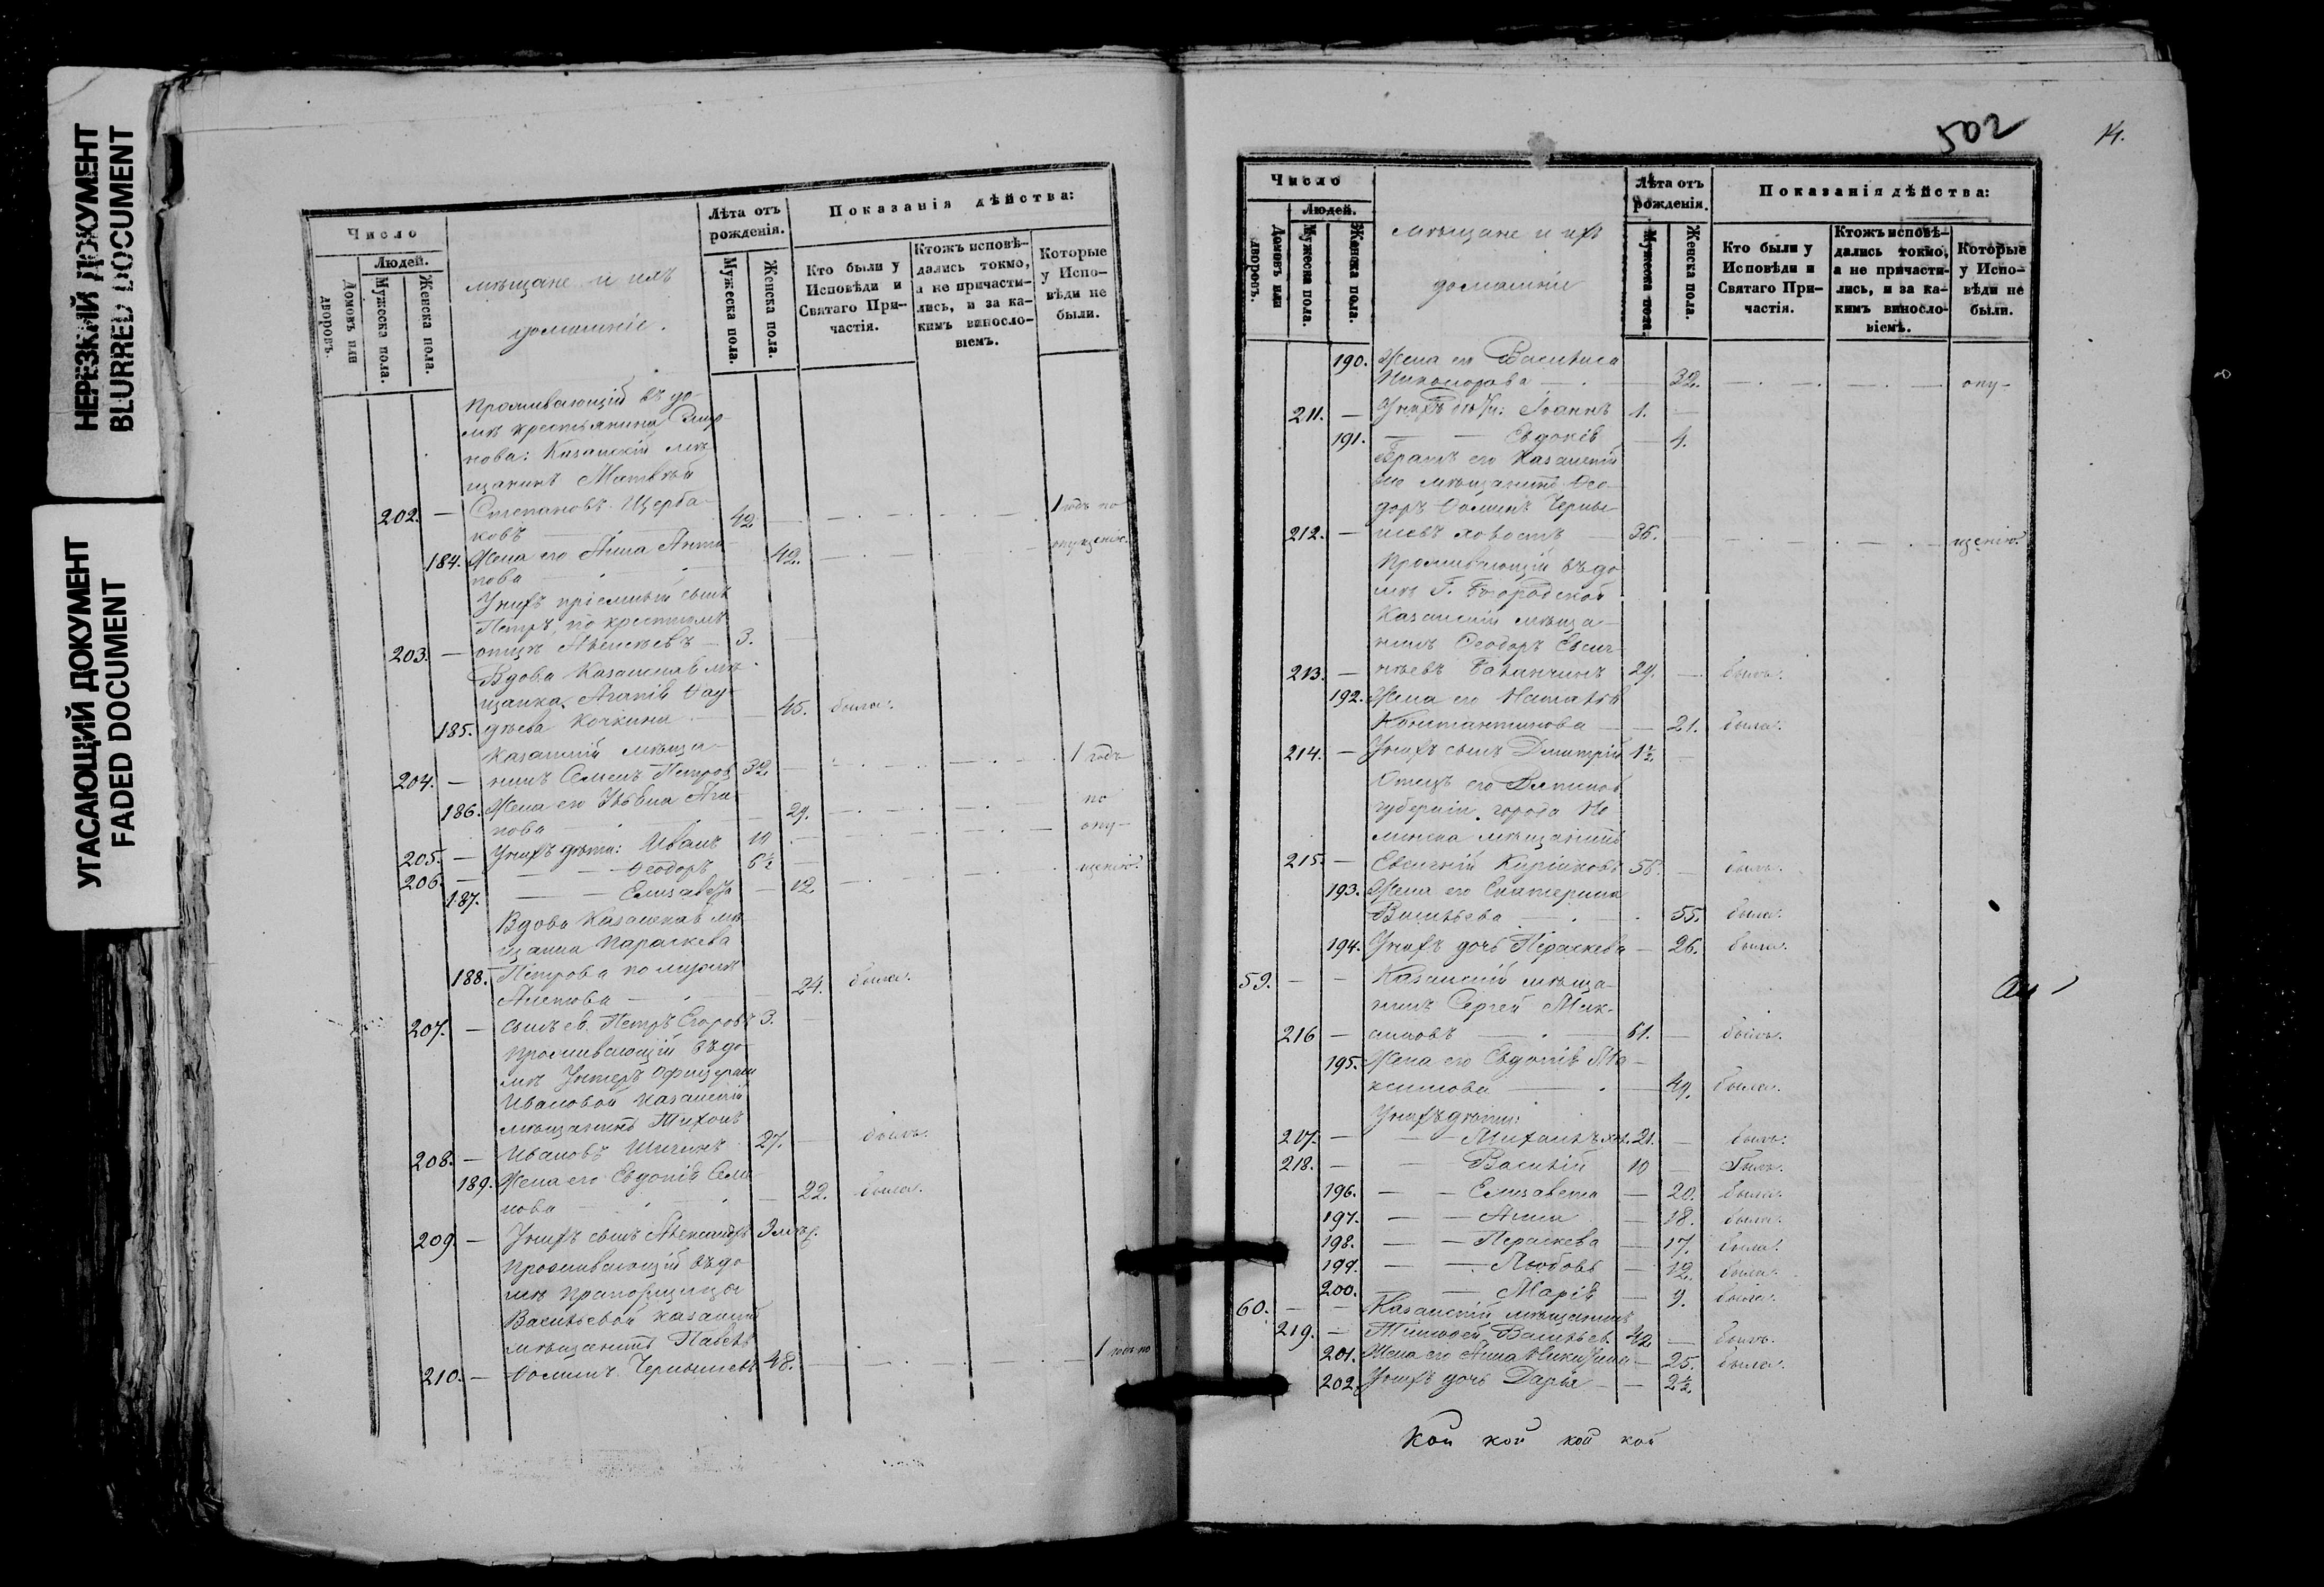 НЕРЕЗКИЙ ДОКУМЕНТ
BLURRED DOCUMENT
УГАСАЮЩИЙ ДОКУМЕНТ
FADED DOCUMENT
Число
Домовъ или дворовъ.
Людей.
Мужеска пола.
Женска пола.
мѣщане и ихъ
домашніе.
Лѣта отъ рожденія.
Мужеска пола.
Женска пола.
Показанія дѣйства:
Кто были у Исповѣди и Святаго Причастія.
Ктожъ исповѣдались токмо, а не причастились, и за какимъ винословіемъ.
Которые у Исповѣди не были.
Проживающій въ до-
мѣ крестьянина
нова: Казанскій мѣ-
щанинъ Матвѣй
202. — Степановъ Щерба-
ковъ — 42 — 1 годъ по
184. Жена его Анна Анти-
пова — 42. — опущенію.
У нихъ пріемный сынъ
Петръ, по крестномъ
203. — отцѣ Алексѣевъ — 3. —
Вдова Казанская мѣ-
щанка Агапія
185. Кочкина — 45. была.
Казанскій мѣща-
204. — нинъ Семенъ Петров 32 — 1 годъ
186. Жена его Ага-
пова — 29. — по
205. — У нихъ дѣти: Иванъ 10 — опу-
206. — Ѳеодоръ 6½ — щенію.
187. — Елизавета — 12
Вдова Казанская мѣ-
щанка Параскева
188. Петрова по мужѣ
24. была.
207. — сынъ ея Петръ Егоровъ 3. —
Проживающій въ до-
мѣ Унтеръ Офицерши
Ивановой Казанскій
мѣщанинъ Тихонъ
208. — Ивановъ 27. — былъ.
189. Жена его Евдокія Семе-
нова — 22. была.
209. — У нихъ сынъ Александръ
Проживающій въ до-
мѣ прапорщицы
Васильевой казанскій
мѣщанинъ Павелъ
210. — Ѳоминъ Чернышевъ 48. — 1 годъ по
502
14.
Число
Домовъ или дворовъ.
Людей.
Мужеска пола.
Женска пола.
мѣщане и ихъ
домашніе
Лѣта отъ рожденія.
Мужеска пола.
Женска пола.
Показанія дѣйства:
Кто были у Исповѣди и Святаго Причастія.
Ктожъ исповѣдались токмо, а не причастились, и за какимъ винословіемъ.
Которые у Исповѣди не были.
190. Жена его Василиса
Никанорова — 32. — опу-
211. — У нихъ дѣти: Іоаннъ 1. —
191. — Евдокія — 4.
Братъ его Казанскій
же мѣщанинъ Ѳео-
доръ Ѳоминъ Черны-
212. — шевъ холостъ — 36. — щенію.
Проживающій въ до-
мѣ Г. Богородской
Казанскій мѣща-
нинъ Ѳеодоръ Евси-
213. — 29. — былъ.
192. Жена его Наталья
Константинова — 21. была.
214. — У нихъ сынъ Дмитрій 1½ —
Отецъ его Вятской
губерніи города
мѣщанинъ
215. — Евсигній 58. — былъ.
193. Жена его Екатерина
Васильева — 55. была.
194. У нихъ дочь Параскева — 26. была.
59. — — Казанскій мѣща-
нинъ Сергей Мак-
216 — симовъ — 51. — былъ.
195. Жена его Евдокія Ма-
ксимова — 49. была.
У нихъ дѣти:
217. — — Михаилъ хол. 21. — былъ.
218. — — Василій 10 — былъ.
196. — — Елизавета — 20. была.
197. — — Анна — 18. была.
198. — — Параскева — 17. была.
199. — — Любовь — 12. была.
200. — — Марія — 9. была.
60. — — Казанскій мѣщанинъ
219. — Тимофей Васильев. 42 — былъ.
201. Жена его Анна Никитина — 25. была.
202. У нихъ дочь Дарія — 2½.
кой кой кой кой